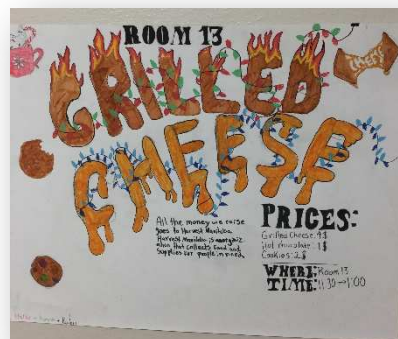 ROOM 13
GRILLED
CHEESE
CHEESE
All the money we raise
goes to Harvest Manitoba
Harvest Manitoba is
that collects food and
supplies for people in need.
PRICES:
Grilled Cheese: 4$
Hot chocolate: 1$
Cookies: 2$
WHERE: Room 13
TIME: 11:30→1:00